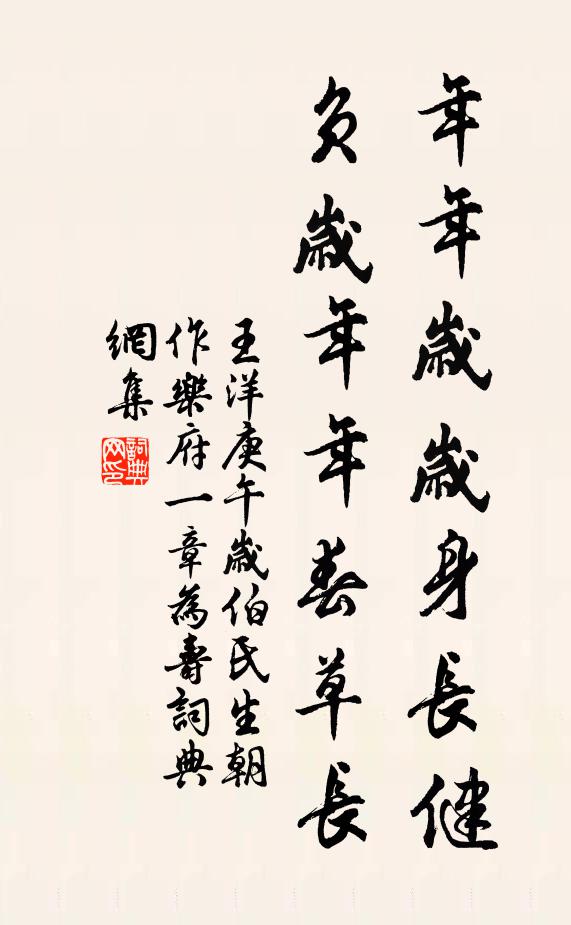 年年歲歲身長健
負歲年年春草長
王洋庚午歲伯氏生朝
作樂府一章為壽詞典
網集
詞典網印